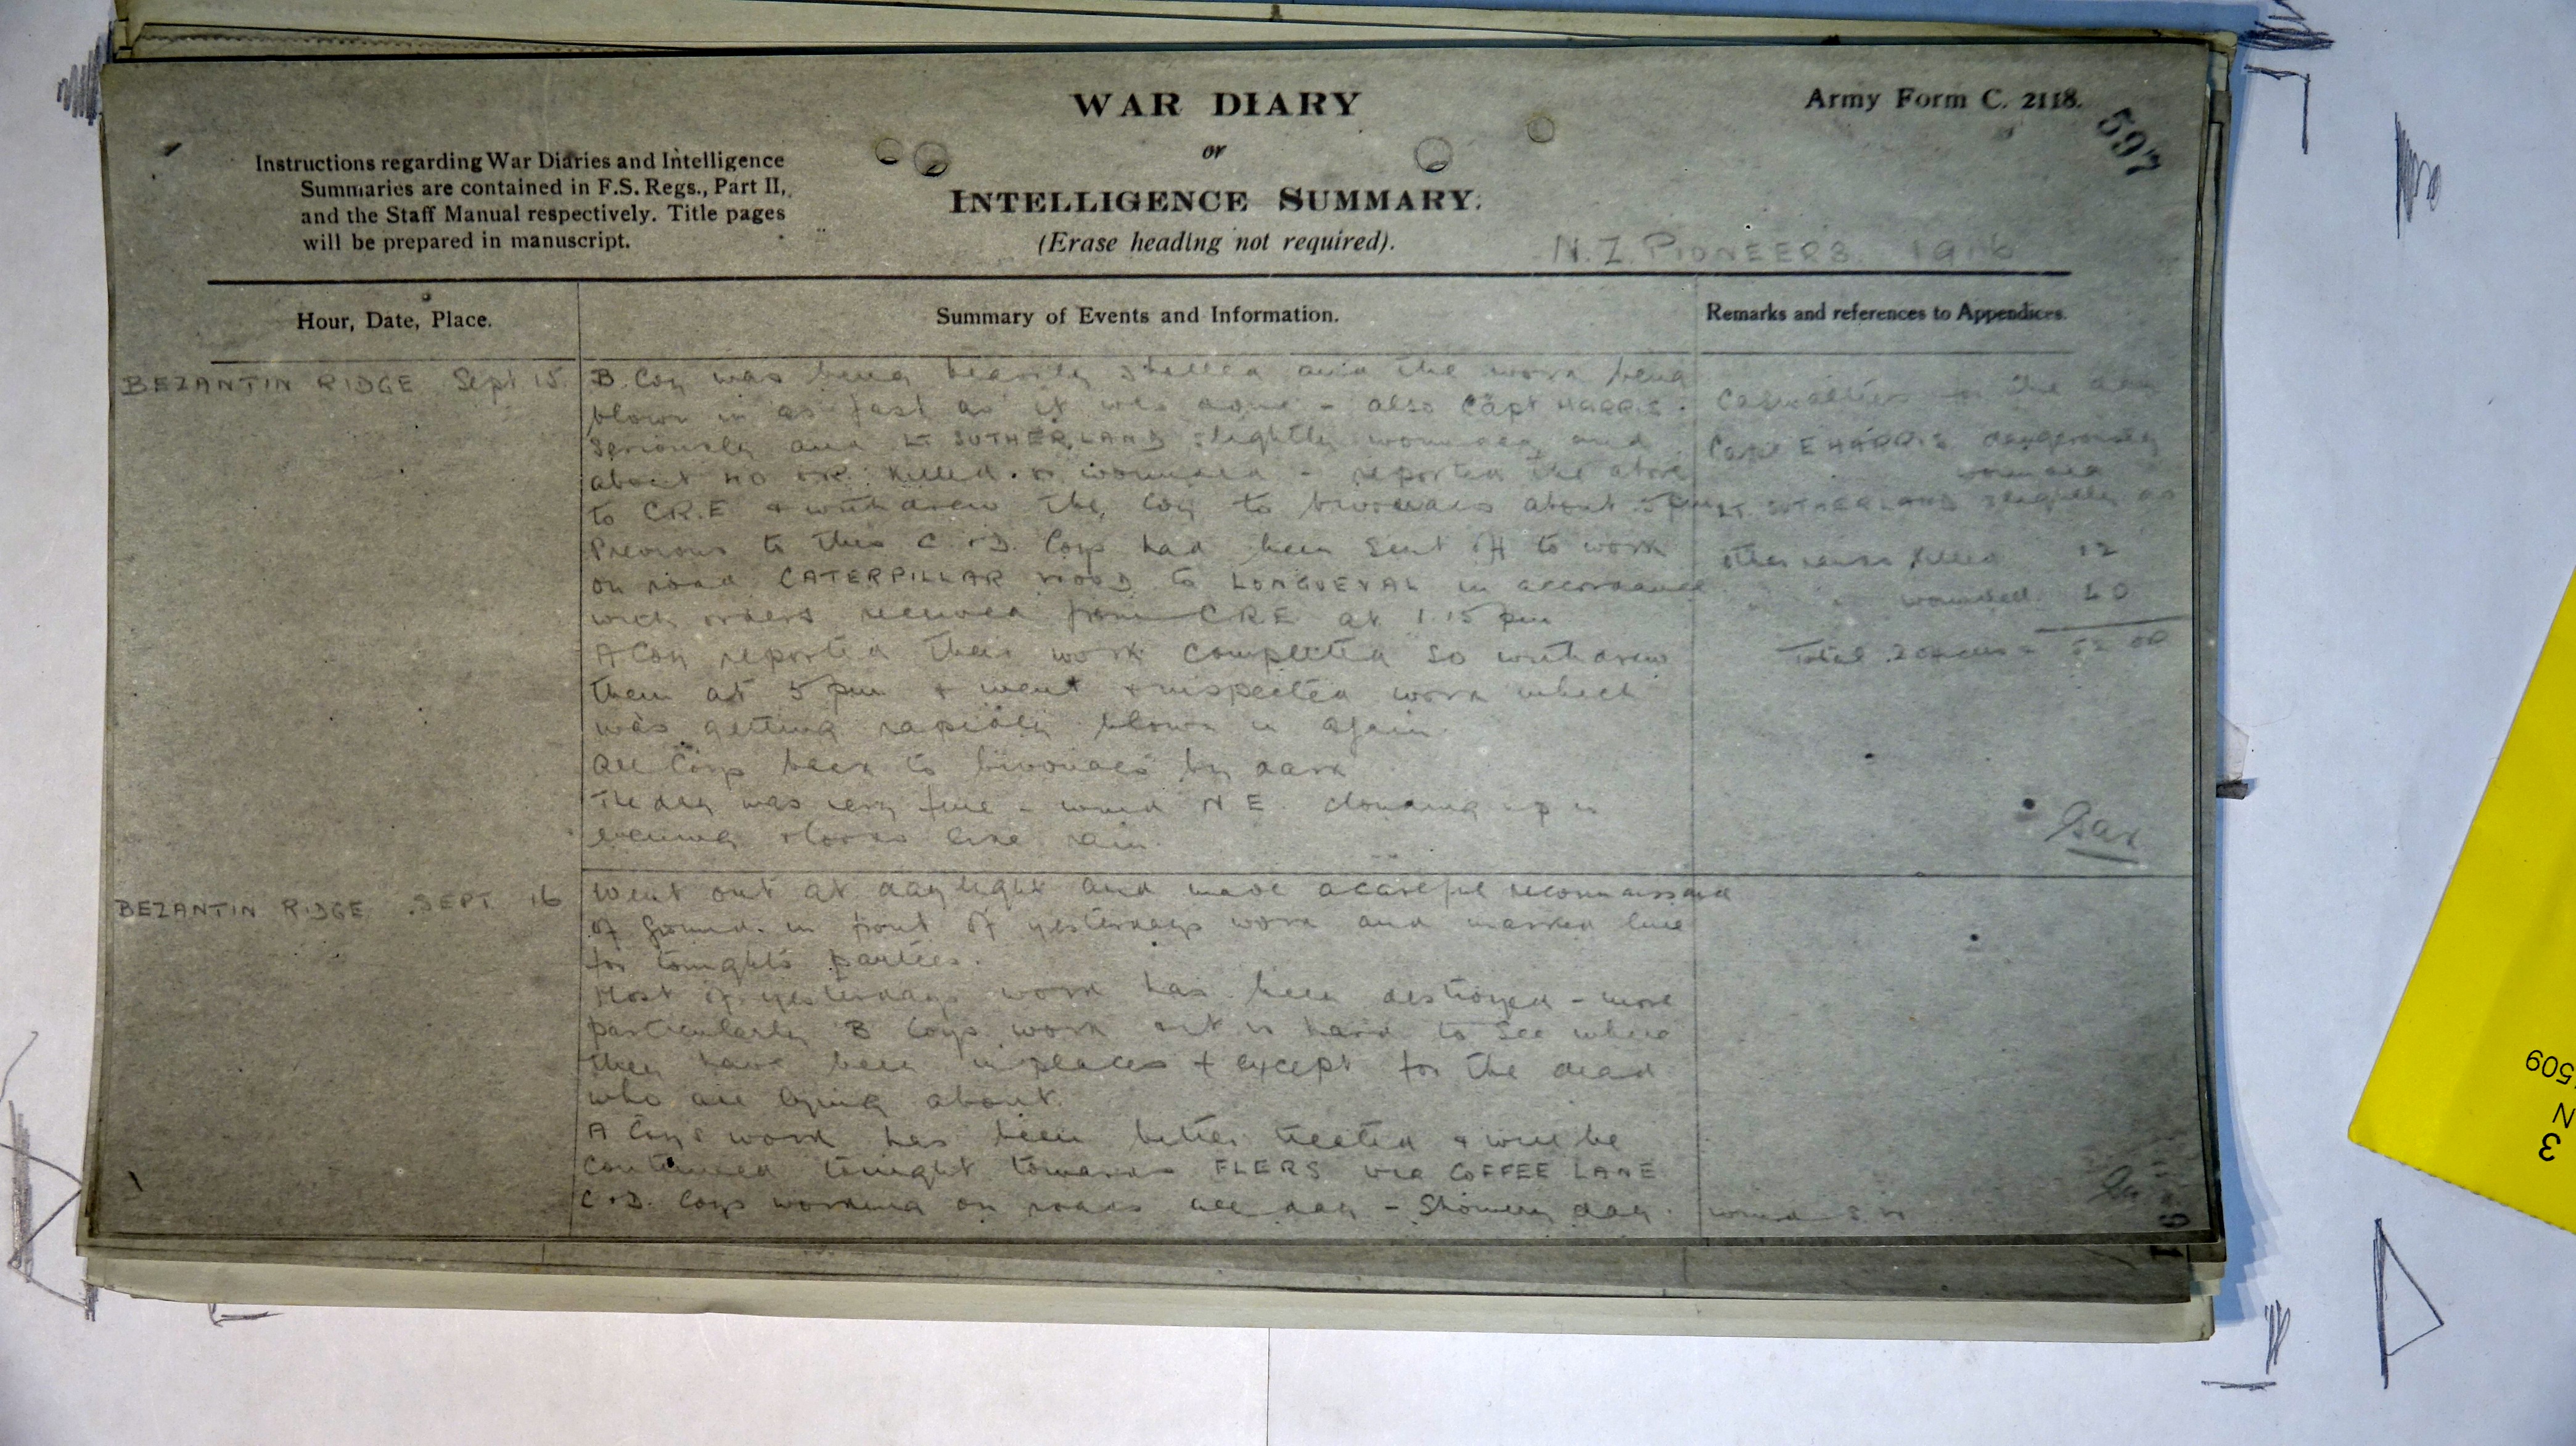 WAR DIARY
or
INTELLIGENCE SUMMARY.
(Erase heading not required).
Army Form C. 2118.
597
Instructions regarding War Diaries and Intelligence
Summaries are contained in F.S. Regs., Part II,
and the Staff Manual respectively. Title pages
will be prepared in manuscript.
N.Z. PIONEERS. 1916
Hour, Date, Place.
Summary of Events and Information.
Remarks and references to Appendices.
BEZANTIN RIDGE Sept 15
B. Coy was being heavily shelled and the work being
blown in as fast as it was done - also Capt HARRIS
seriously and Lt SUTHERLAND slightly wounded and
about 40 OR killed & wounded - reported the above
to C.R.E & withdrew the Coy to bivouacs about 5 pm
Previous to this C & D. Coys had been sent off to work
on road CATERPILLAR WOOD to LONGUEVAL in accordance
with orders received from CRE at 1.15 pm
A Coy reported their work completed so withdrew
them at 5 pm & went & inspected work which
was getting rapidly blown in again.
All Coys back to bivouacs by dark
The day was very fine - wind N E. clouding up in
evening & looks like rain.
Casualties for the day
Capt E HARRIS dangerously
wounded
Lt. SUTHERLAND slightly do
Other ranks killed 12
" " wounded 40
Total 2 officers - 52 OR
BEZANTIN RIDGE SEPT. 16
Went out at daylight and made a careful reconnaissance
of ground in front of yesterdays work and marked line
for tonights parties.
Most of yesterdays work has been destroyed - more
particularly B Coys work & it is hard to see where
they have been in places & except for the dead
who are lying about.
A Coys work has been better treated & will be
continued tonight towards FLERS via COFFEE LANE
C & D. Coys working on roads all day - Showery day.
wind S W
509
N
3